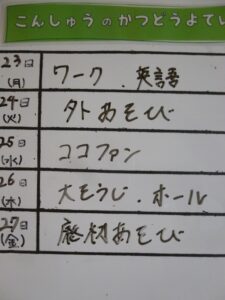 こんしゅうのかつどうよてい
23日(月) ワーク．英語
24日(火) 外あそび
25日(水) ココファン
26日(木) 大そうじ．ホール
27日(金) 廃材あそび